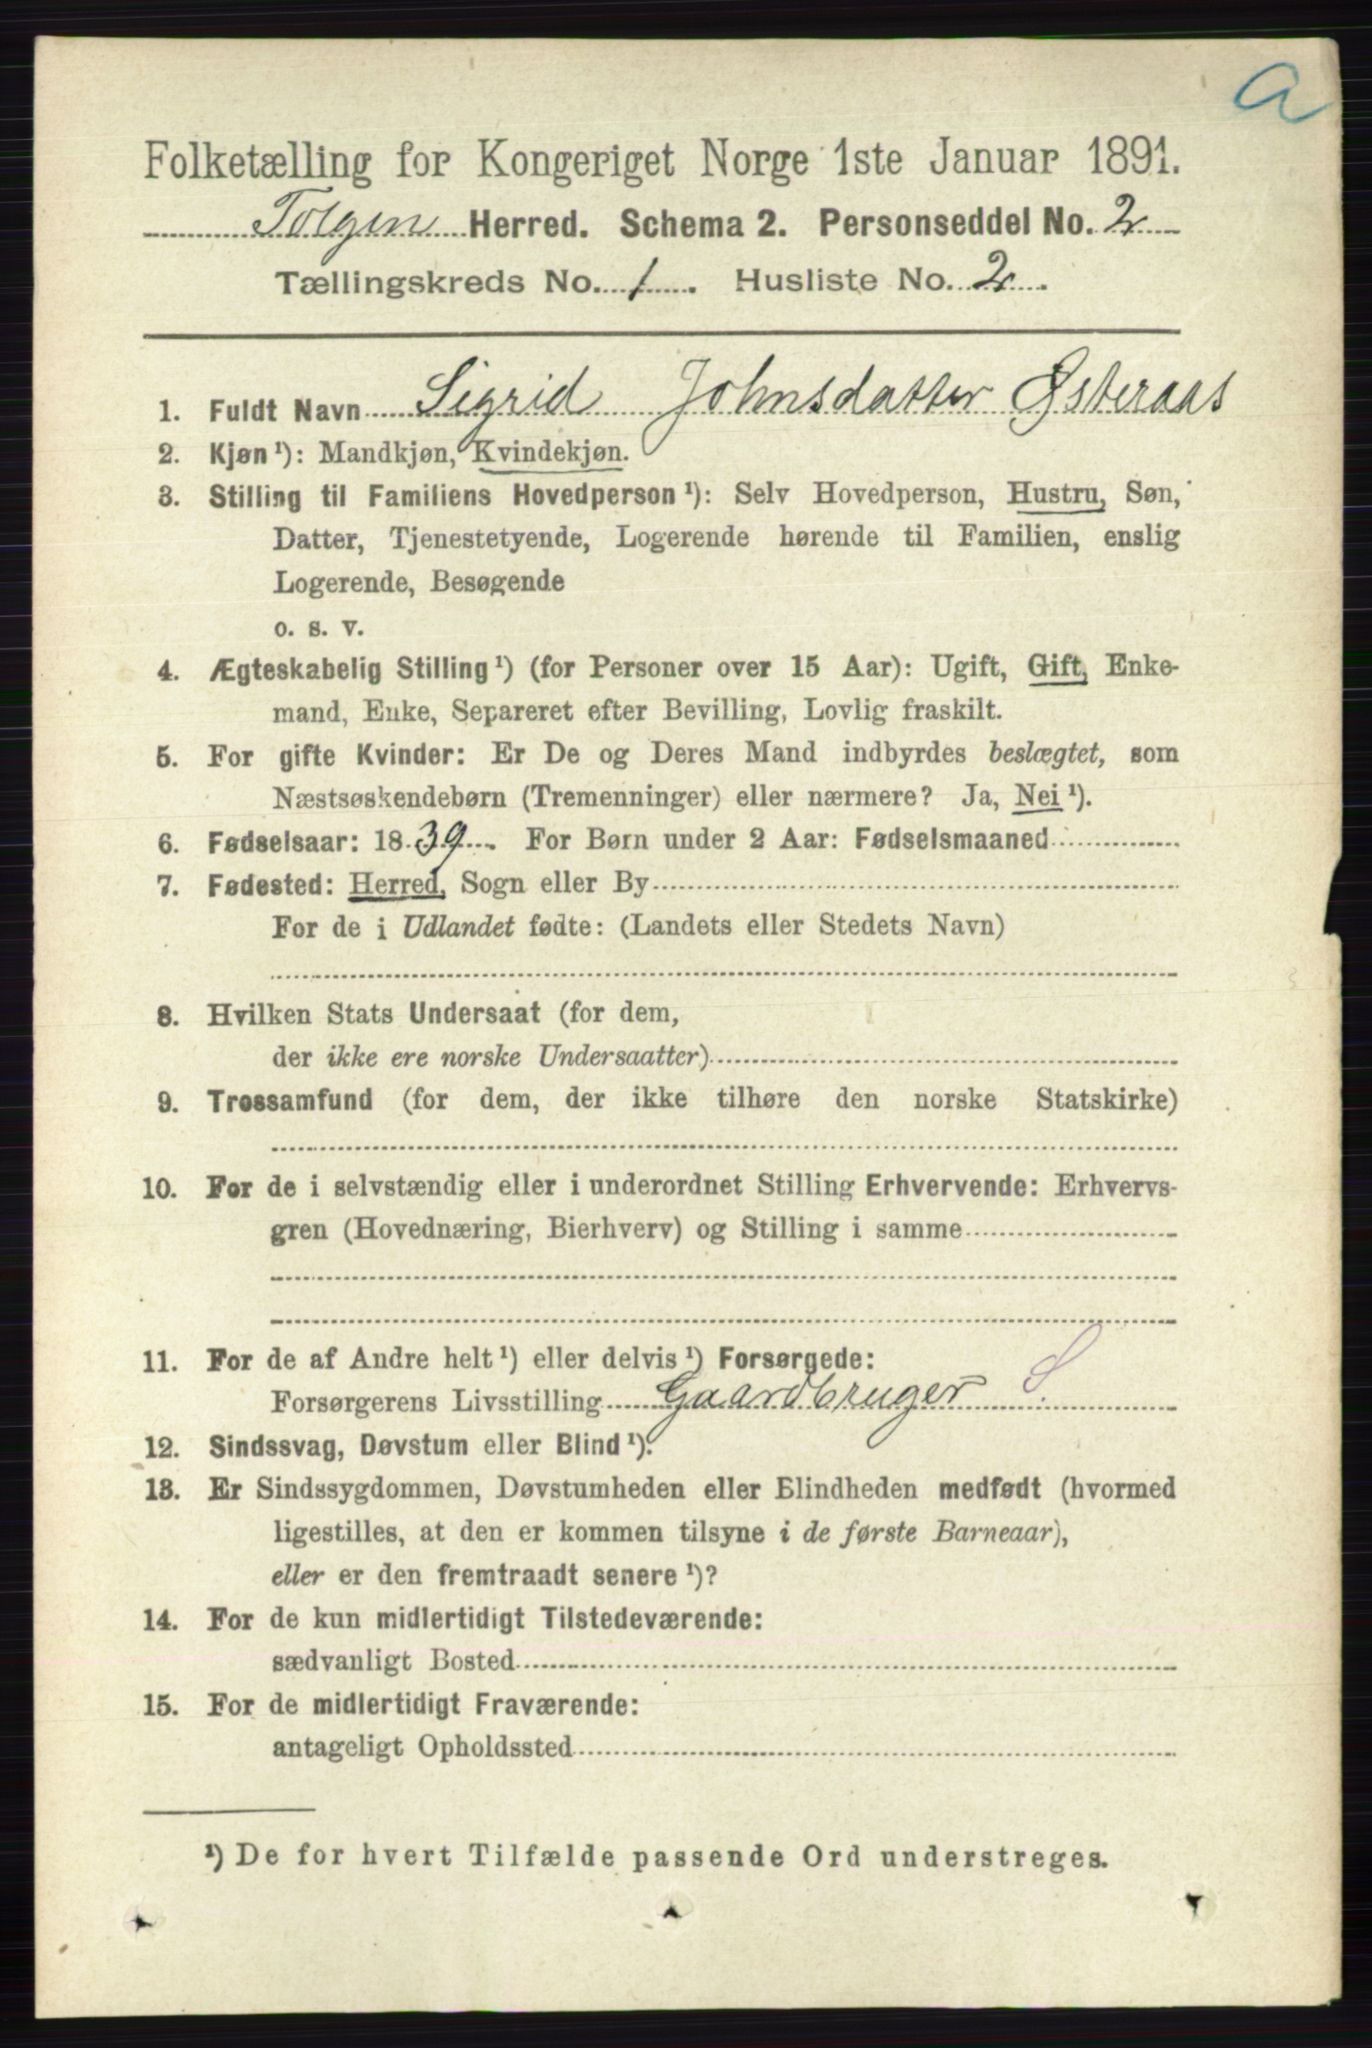 a
Folketælling for Kongeriget Norge 1ste Januar 1891.
Tolgen Herred. Schema 2. Personseddel No. 2
Tællingskreds No. 1. Husliste No. 2.
1. Fuldt Navn Sigrid Johnsdatter Østeraas
2. Kjøn ¹): Mandkjøn, Kvindekjøn.
3. Stilling til Familiens Hovedperson ¹): Selv Hovedperson, Hustru, Søn,
Datter, Tjenestetyende, Logerende hørende til Familien, enslig
Logerende, Besøgende
o. s. v.
4. Ægteskabelig Stilling ¹) (for Personer over 15 Aar): Ugift, Gift, Enke-
mand, Enke, Separeret efter Bevilling, Lovlig fraskilt.
5. For gifte Kvinder: Er De og Deres Mand indbyrdes beslægtet, som
Næstsøskendebørn (Tremenninger) eller nærmere? Ja, Nei ¹).
6. Fødselsaar: 1839. For Børn under 2 Aar: Fødselsmaaned
7. Fødested: Herred, Sogn eller By
For de i Udlandet fødte: (Landets eller Stedets Navn)
8. Hvilken Stats Undersaat (for dem,
der ikke ere norske Undersaatter)
9. Trossamfund (for dem, der ikke tilhøre den norske Statskirke)
10. For de i selvstændig eller i underordnet Stilling Erhvervende: Erhvervs-
gren (Hovednæring, Bierhverv) og Stilling i samme
11. For de af Andre helt ¹) eller delvis ¹) Forsørgede:
Forsørgerens Livsstilling Gaardbruger S.
12. Sindssvag, Døvstum eller Blind ¹).
13. Er Sindssygdommen, Døvstumheden eller Blindheden medfødt (hvormed
ligestilles, at den er kommen tilsyne i de første Barneaar),
eller er den fremtraadt senere ¹)?
14. For de kun midlertidigt Tilstedeværende:
sædvanligt Bosted
15. For de midlertidigt Fraværende:
antageligt Opholdssted
¹) De for hvert Tilfælde passende Ord understreges.